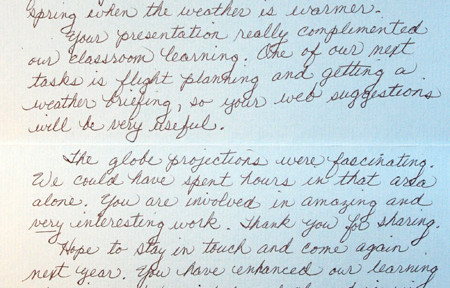 spring when the weather is warmer.
Your presentation really complimented
our classroom learning. One of our next
tasks is flight planning and getting a
weather briefing, so your web suggestions
will be very useful.
The globe projections were fascinating.
We could have spent hours in that area
alone. You are involved in amazing and
very interesting work. Thank you for sharing.
Hope to stay in touch and come again
next year. You have enhanced our learning